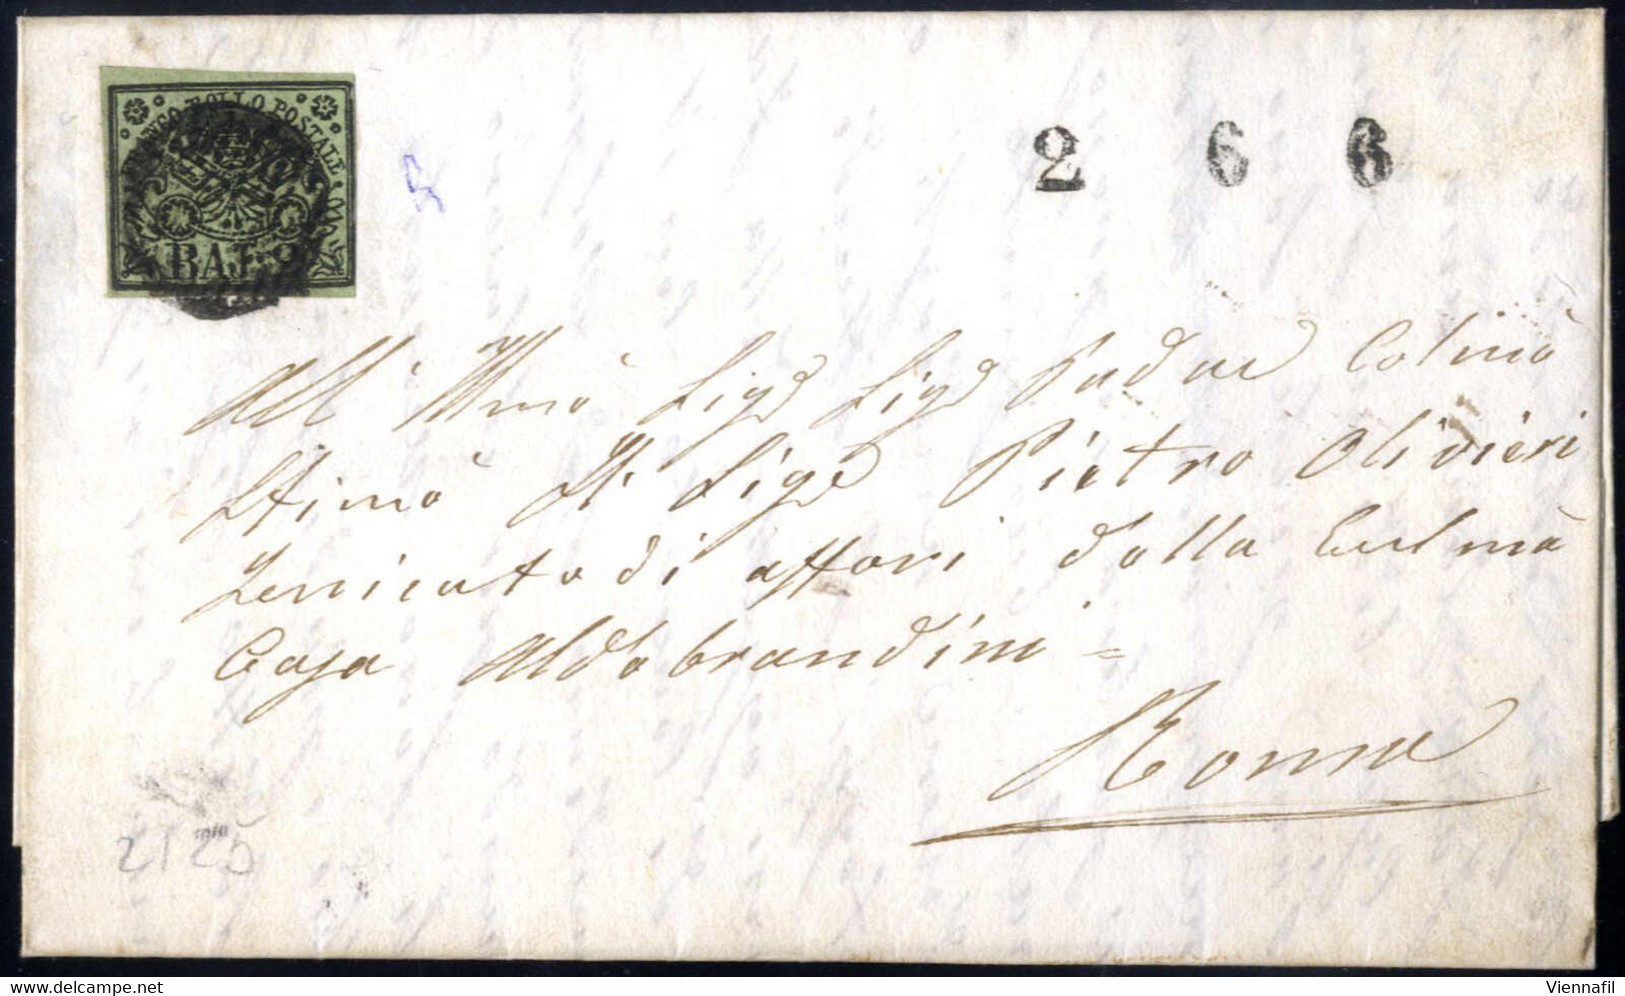 FRANCO BOLLO POSTALE
BAJ: 2
2 6 6
All' Illmo Sigr Sigr Padne Colmo
Stimo Il Sige Pietro Olivieri
di affari della Eccelma
Casa Aldobrandini =
Roma
2T25
delcampe.net
Viennafil